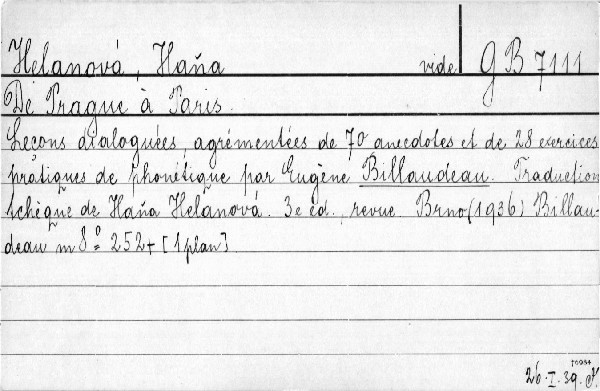 Helanová, Haňa vide GB 7111
De Prague à Paris.
Leçons dialoguées, agrémentées de 70 anecdotes et de 28 exercices
pratiques de phonétique par Eugène Billaudeau. Traduction
tchèque de Haňa Helanová. 3e éd., revue Brno (1936) Billau-
deau m 8° 252 + [1 plan]
26. I. 39.